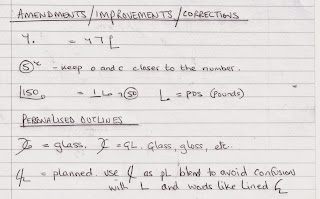 AMENDMENTS/IMPROVEMENTS/CORRECTIONS
%. =
5 °c - keep o and c closer to the number.
£150 = L = PDS (Pounds)
PERSONALISED OUTLINES
= glass. = GL. Glass, gloss, etc.
= planned. use as pL blend to avoid confusion
with L and words like Lined